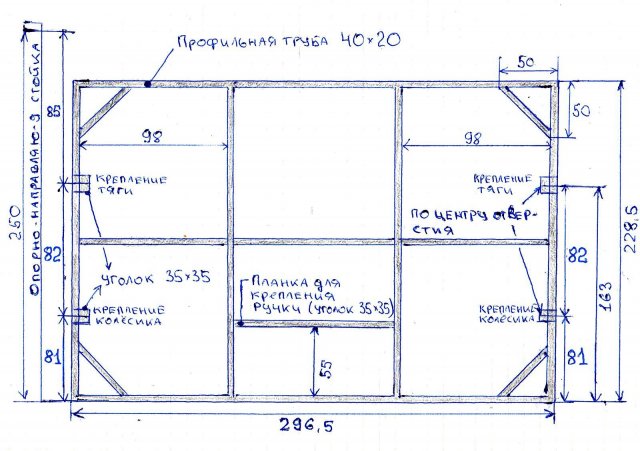 Профильная труба 40×20
50
50
85
98
98
Крепление
тяги
Крепление
тяги
250
Опорно-направляю-я стойка
По центру отвер-
стия
228,5
82
Уголок 35×35
Планка для
крепления
ручки (уголок 35×35)
82
163
Крепление
колёсика
Крепление
колёсика
81
55
81
296,5